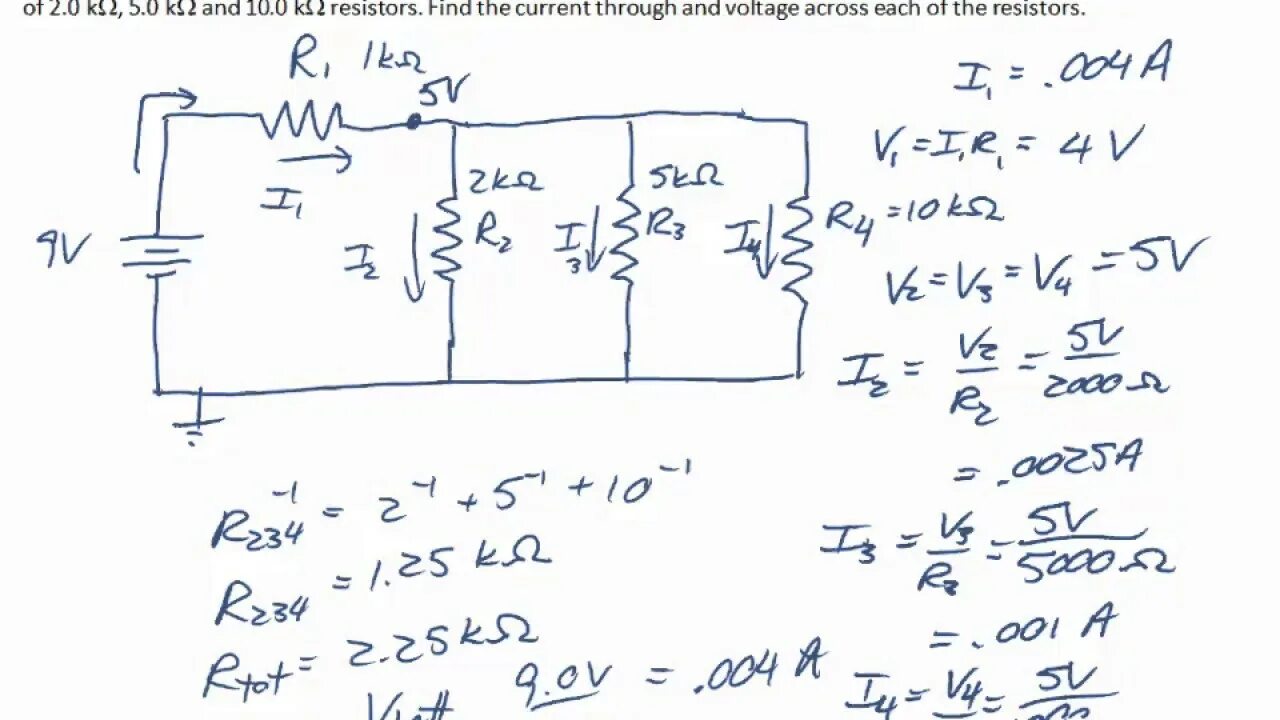 of 2.0 kΩ, 5.0 kΩ and 10.0 kΩ resistors. Find the current through and voltage across each of the resistors.
R₁ 1kΩ
5V
I₁
9V
2kΩ
R₂
I₂
5kΩ
R₃
I₃
I₄
R₄ = 10 kΩ
I₁ = .004 A
V₁ = I₁R₁ = 4 V
V₂ = V₃ = V₄ = 5V
I₂ = V₂/R₂ = 5V/2000 Ω
= .0025A
I₃ = V₃/R₃ = 5V/5000 Ω
= .001 A
I₄ = V₄ = 5V
R₂₃₄⁻¹ = 2⁻¹ + 5⁻¹ + 10⁻¹
R₂₃₄ = 1.25 kΩ
Rtot = 2.25 kΩ
9.0V = .004 A